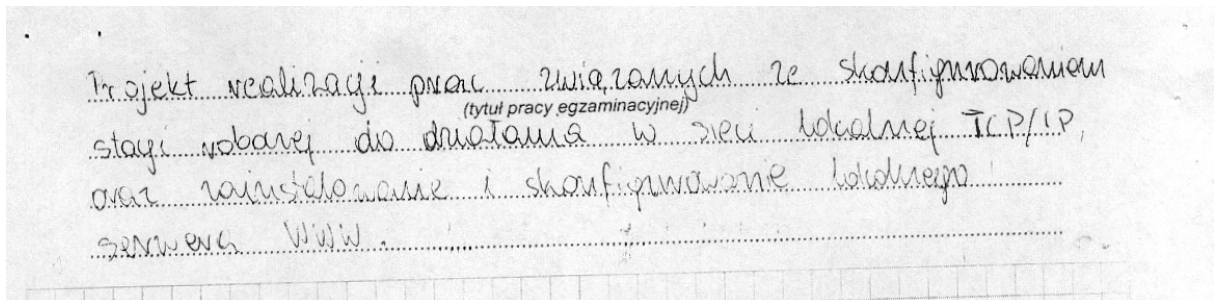 Projekt realizacji prac związanych ze skonfigurowaniem
(tytuł pracy egzaminacyjnej)
stacji roboczej do działania w sieci lokalnej TCP/IP,
oraz zainstalowanie i skonfigurowanie lokalnego
serwera WWW.